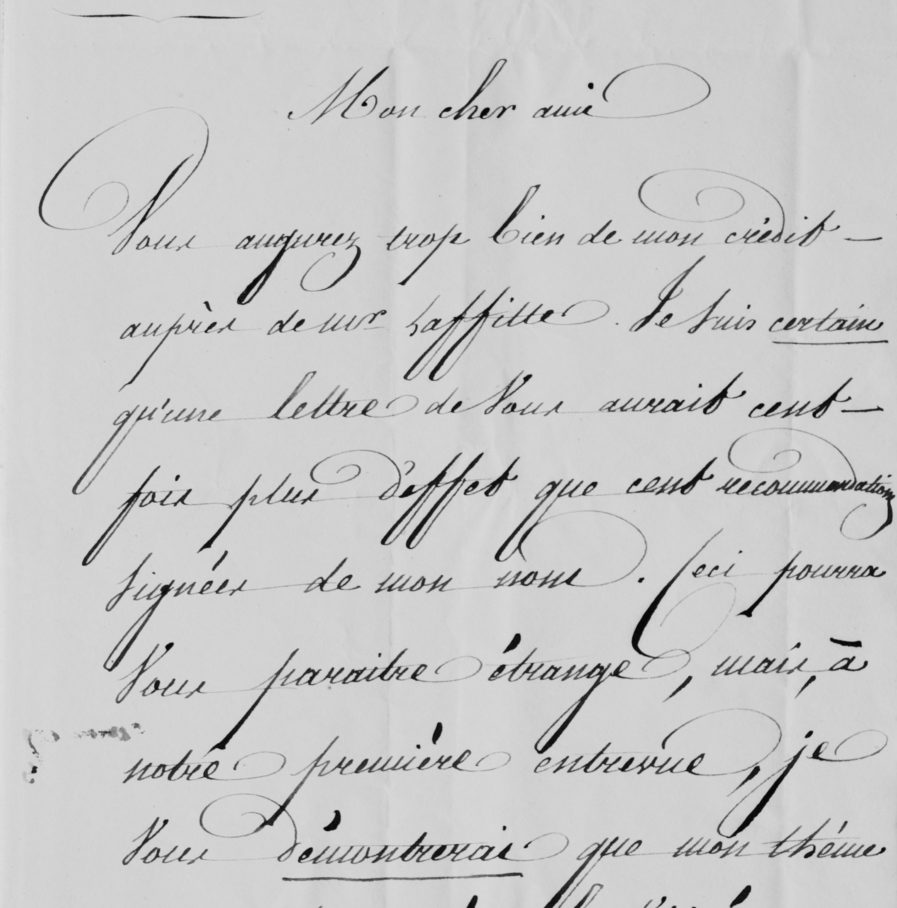 Mon cher ami
Vous augurez trop bien de mon crédit —
auprès de mr Laffitte. Je suis certain
qu'une lettre de Vous aurait cent —
fois plus d'effet que cent recommandations
signées de mon nom. Ceci pourra
Vous paraitre étrange, mais, à
notre première entrevue, je
Vous démontrerai que mon thême